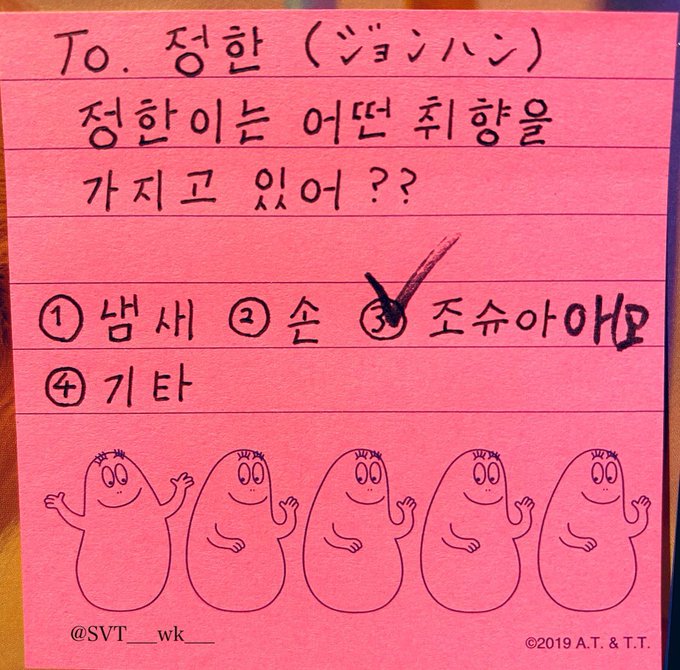 To. 정한 (ジョンハン)
정한이는 어떤 취향을
가지고 있어??
① 냄새 ② 손 ③ 조슈아
④ 기타
@SVT___wk___
©2019 A.T. & T.T.